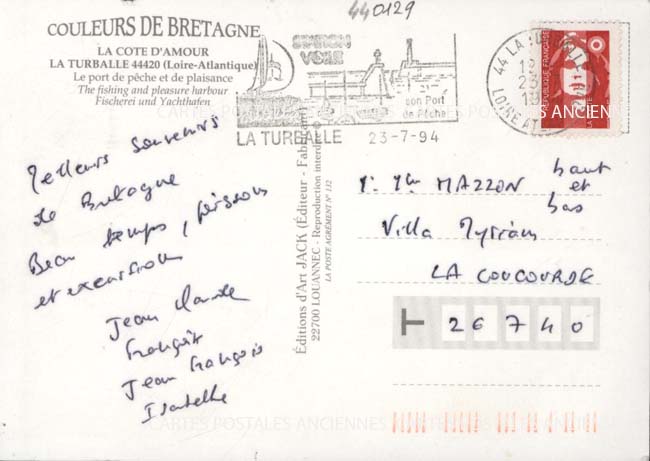 440129
COULEURS DE BRETAGNE
LA COTE D'AMOUR
LA TURBALLE 44420 (Loire-Atlantique)
Le port de pêche et de plaisance
The fishing and pleasure harbour
Fischerei und Yachthafen
VOILE
son Port
de Pêche
LA TURBALLE 23-7-94
44 LA TURBALLE
LOIRE AT
REPUBLIQUE FRANÇAISE
LA POSTE
CARTES POSTALES ANCIENNES
Meilleurs souvenirs
de Bretagne
Beau temps, poissons
et excursions
Jean Claude
Françoise
Jean François
Isabelle
Editions d'Art JACK (Éditeur - Fabricant)
22700 LOUANNEC - Reproduction interdite
LA POSTE AGRÉMENT N° 132
MAZZON haut
et
bas
Villa Myriam
LA COUCOURDE
26740
CARTES POSTALES ANCIENNES